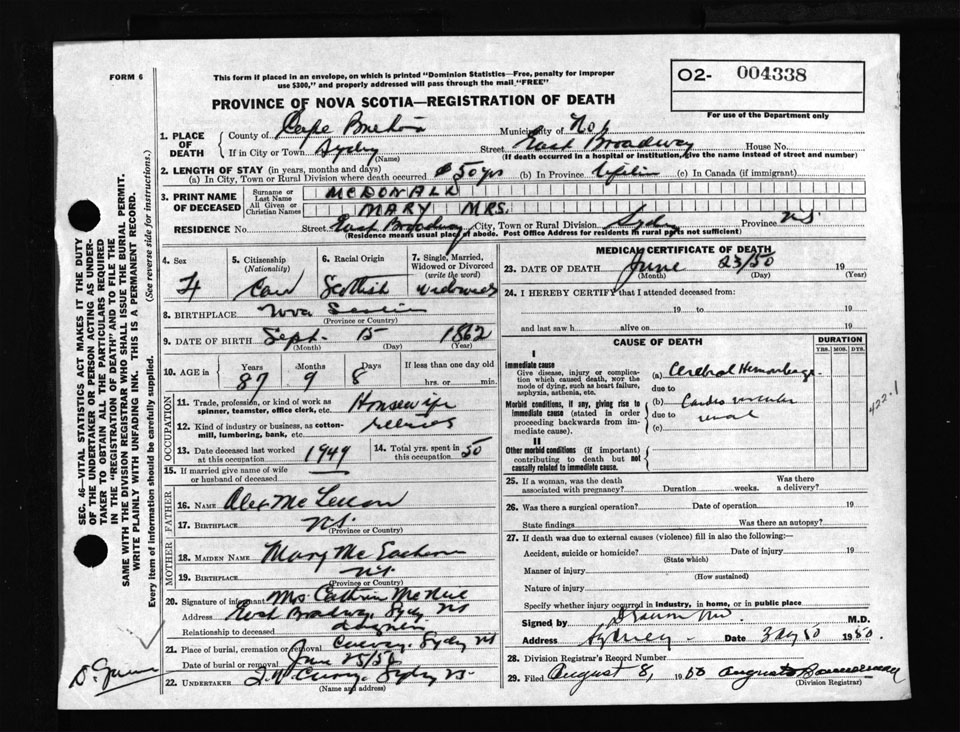 FORM 6
This form if placed in an envelope, on which is printed "Dominion Statistics—Free, penalty for improper
use $300," and properly addressed will pass through the mail "FREE"
O2- 004338
For use of the Department only
PROVINCE OF NOVA SCOTIA—REGISTRATION OF DEATH
1. PLACE OF DEATH
County of Cape Breton Municipality of No 1
If in City or Town Sydney (Name) Street East Broadway House No.
(If death occurred in a hospital or institution, give the name instead of street and number)
2. LENGTH OF STAY (in years, months and days)
(a) In City, Town or Rural Division where death occurred 50 yrs (b) In Province Lifetime (c) In Canada (if immigrant)
3. PRINT NAME OF DECEASED
Surname or Last Name MCDONALD
All Given or Christian Names MARY MRS.
RESIDENCE No. Street East Broadway City, Town or Rural Division Sydney Province NS
(Residence means usual place of abode. Post Office Address for residents in rural parts not sufficient)
4. Sex F
5. Citizenship (Nationality) Can
6. Racial Origin Scottish
7. Single, Married, Widowed or Divorced (write the word) widowed
8. BIRTHPLACE Nova Scotia
(Province or Country)
9. DATE OF BIRTH Sept. 15 1862
(Month) (Day) (Year)
10. AGE in Years 87 Months 9 Days 8 If less than one day old
hrs. or min.
OCCUPATION
11. Trade, profession, or kind of work as spinner, teamster, office clerk, etc. Housewife
12. Kind of industry or business, as cotton-mill, lumbering, bank, etc. retired
13. Date deceased last worked at this occupation 1949
14. Total yrs. spent in this occupation 50
15. If married give name of wife or husband of deceased
FATHER
16. NAME Alex Mc Lennon
17. BIRTHPLACE NS.
(Province or Country)
MOTHER
18. MAIDEN NAME Mary Mc Eachern
19. BIRTHPLACE NS
(Province or Country)
20. Signature of informant Mrs. Cathrin Mc Neil
Address East Broadway Sydney NS
Relationship to deceased daughter
21. Place of burial, cremation or removal Sydney NS
Date of burial or removal June 25/50
22. UNDERTAKER Curry, Sydney NS.
(Name and address)
MEDICAL CERTIFICATE OF DEATH
23. DATE OF DEATH June 23/50 19
(Month) (Day) (Year)
24. I HEREBY CERTIFY that I attended deceased from:
19 to 19
and last saw h alive on 19
CAUSE OF DEATH
DURATION
YRS. MOS. DYS.
I
Immediate cause
Give disease, injury or complication which caused death, NOT the mode of dying, such as heart failure, asphyxia, asthenia, etc.
(a) Cerebral Hemorrhage
due to
Morbid conditions, if any, giving rise to immediate cause (stated in order proceeding backwards from immediate cause).
(b) Cardio vascular
due to renal
(c)
422.1
II
Other morbid conditions (if important) contributing to death but not causally related to immediate cause.
25. If a woman, was the death associated with pregnancy? Duration weeks. Was there a delivery?
26. Was there a surgical operation? Date of operation 19
State findings Was there an autopsy?
27. If death was due to external causes (violence) fill in also the following:
Accident, suicide or homicide? Date of injury 19
(State which)
Manner of injury
(How sustained)
Nature of injury
Specify whether injury occurred in industry, in home, or in public place
Signed by M.D.
Address Sydney Date 1950.
28. Division Registrar's Record Number
29. Filed August 8, 1950
(Division Registrar)
SEC. 46—VITAL STATISTICS ACT MAKES IT THE DUTY
OF THE UNDERTAKER OR PERSON ACTING AS UNDER-
TAKER TO OBTAIN ALL THE PARTICULARS REQUIRED
IN THE "REGISTRATION OF DEATH" AND TO FILE THE
SAME WITH THE DIVISION REGISTRAR WHO SHALL ISSUE THE BURIAL PERMIT.
WRITE PLAINLY WITH UNFADING INK. THIS IS A PERMANENT RECORD.
Every item of information should be carefully supplied. (See reverse side for instructions.)